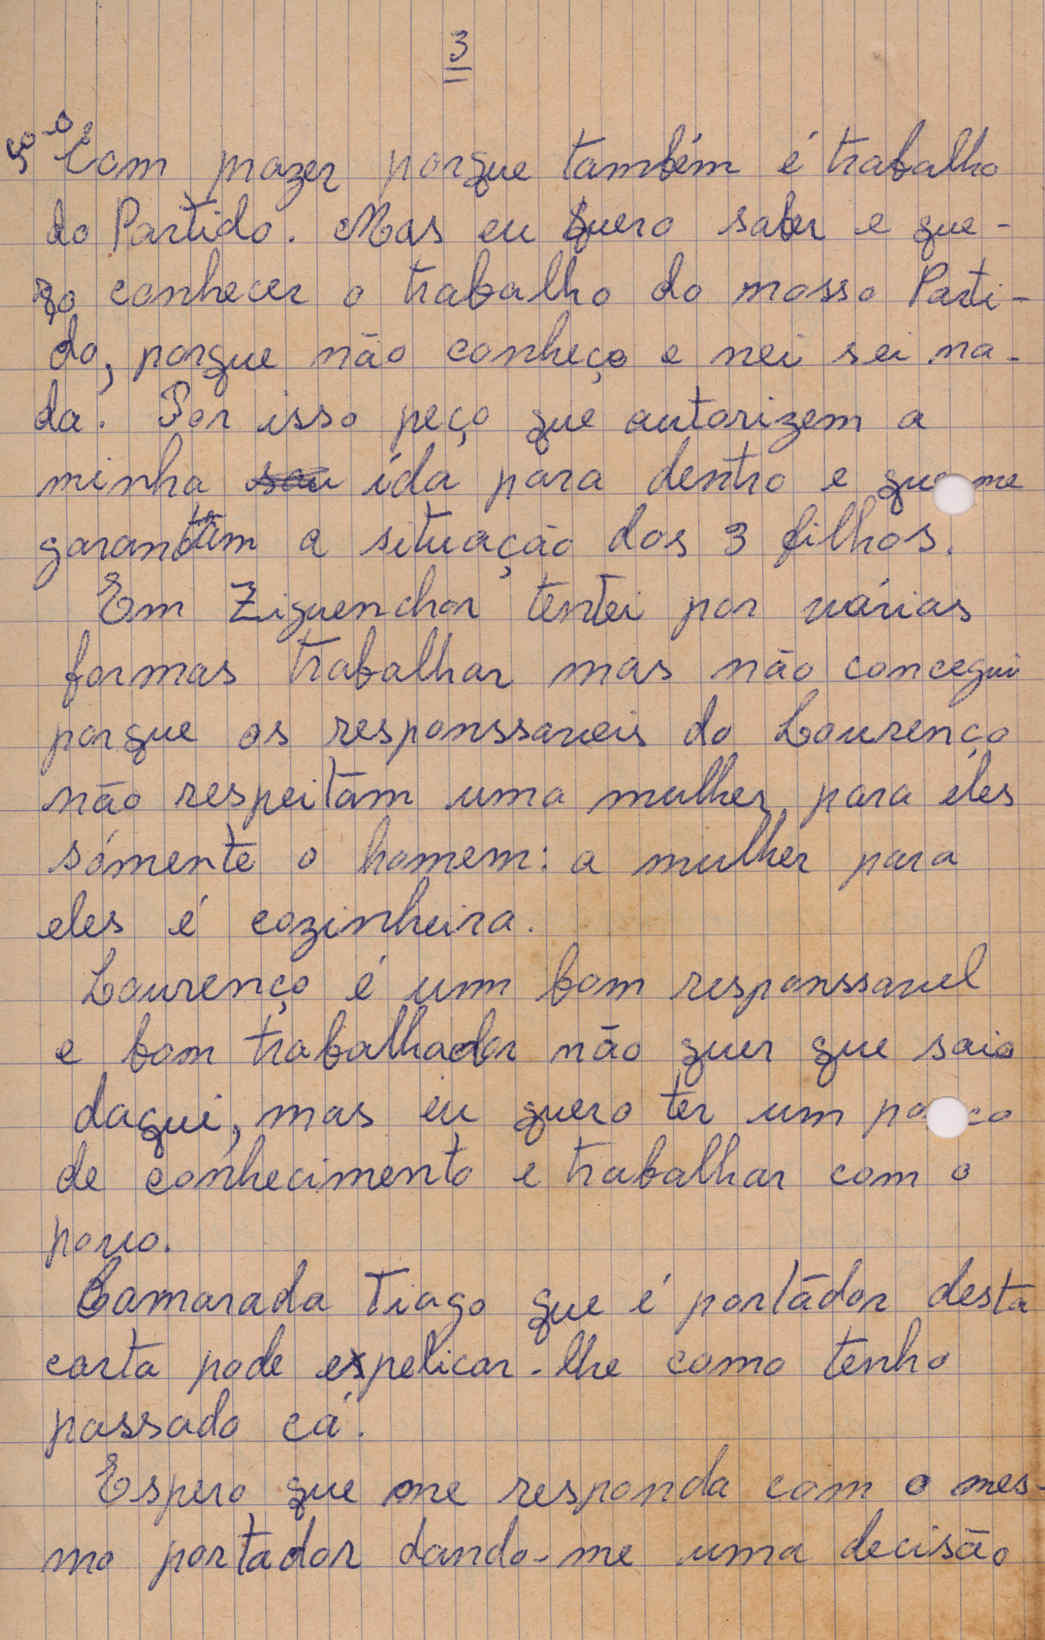 3
ço-o
Com prazer porque também é trabalho
do Partido. Mas eu quero saber e que-
ro conhecer o trabalho do nosso Parti-
do, porque não conheço e nei sei na-
da. Por isso peço que autorizem a
minha sau ida para dentro e que me
garantãm a situação dos 3 filhos.
Em Ziguenchor tentei por várias
formas trabalhar mas não concegui
porque os responssaveis do Lourenço
não respeitam uma mulher, para eles
sómente o homem: a mulher para
eles é cozinheira.
Lourenço é um bom responssavel
e bom trabalhador não quer que saio
daqui, mas eu quero ter um pouco
de conhecimento e trabalhar com o
povo.
Camarada Tiago que é portãdor desta
carta pode expelicar-lhe como tenho
passado cá.
Espero que me responda com o mes-
mo portador dando-me uma decisão